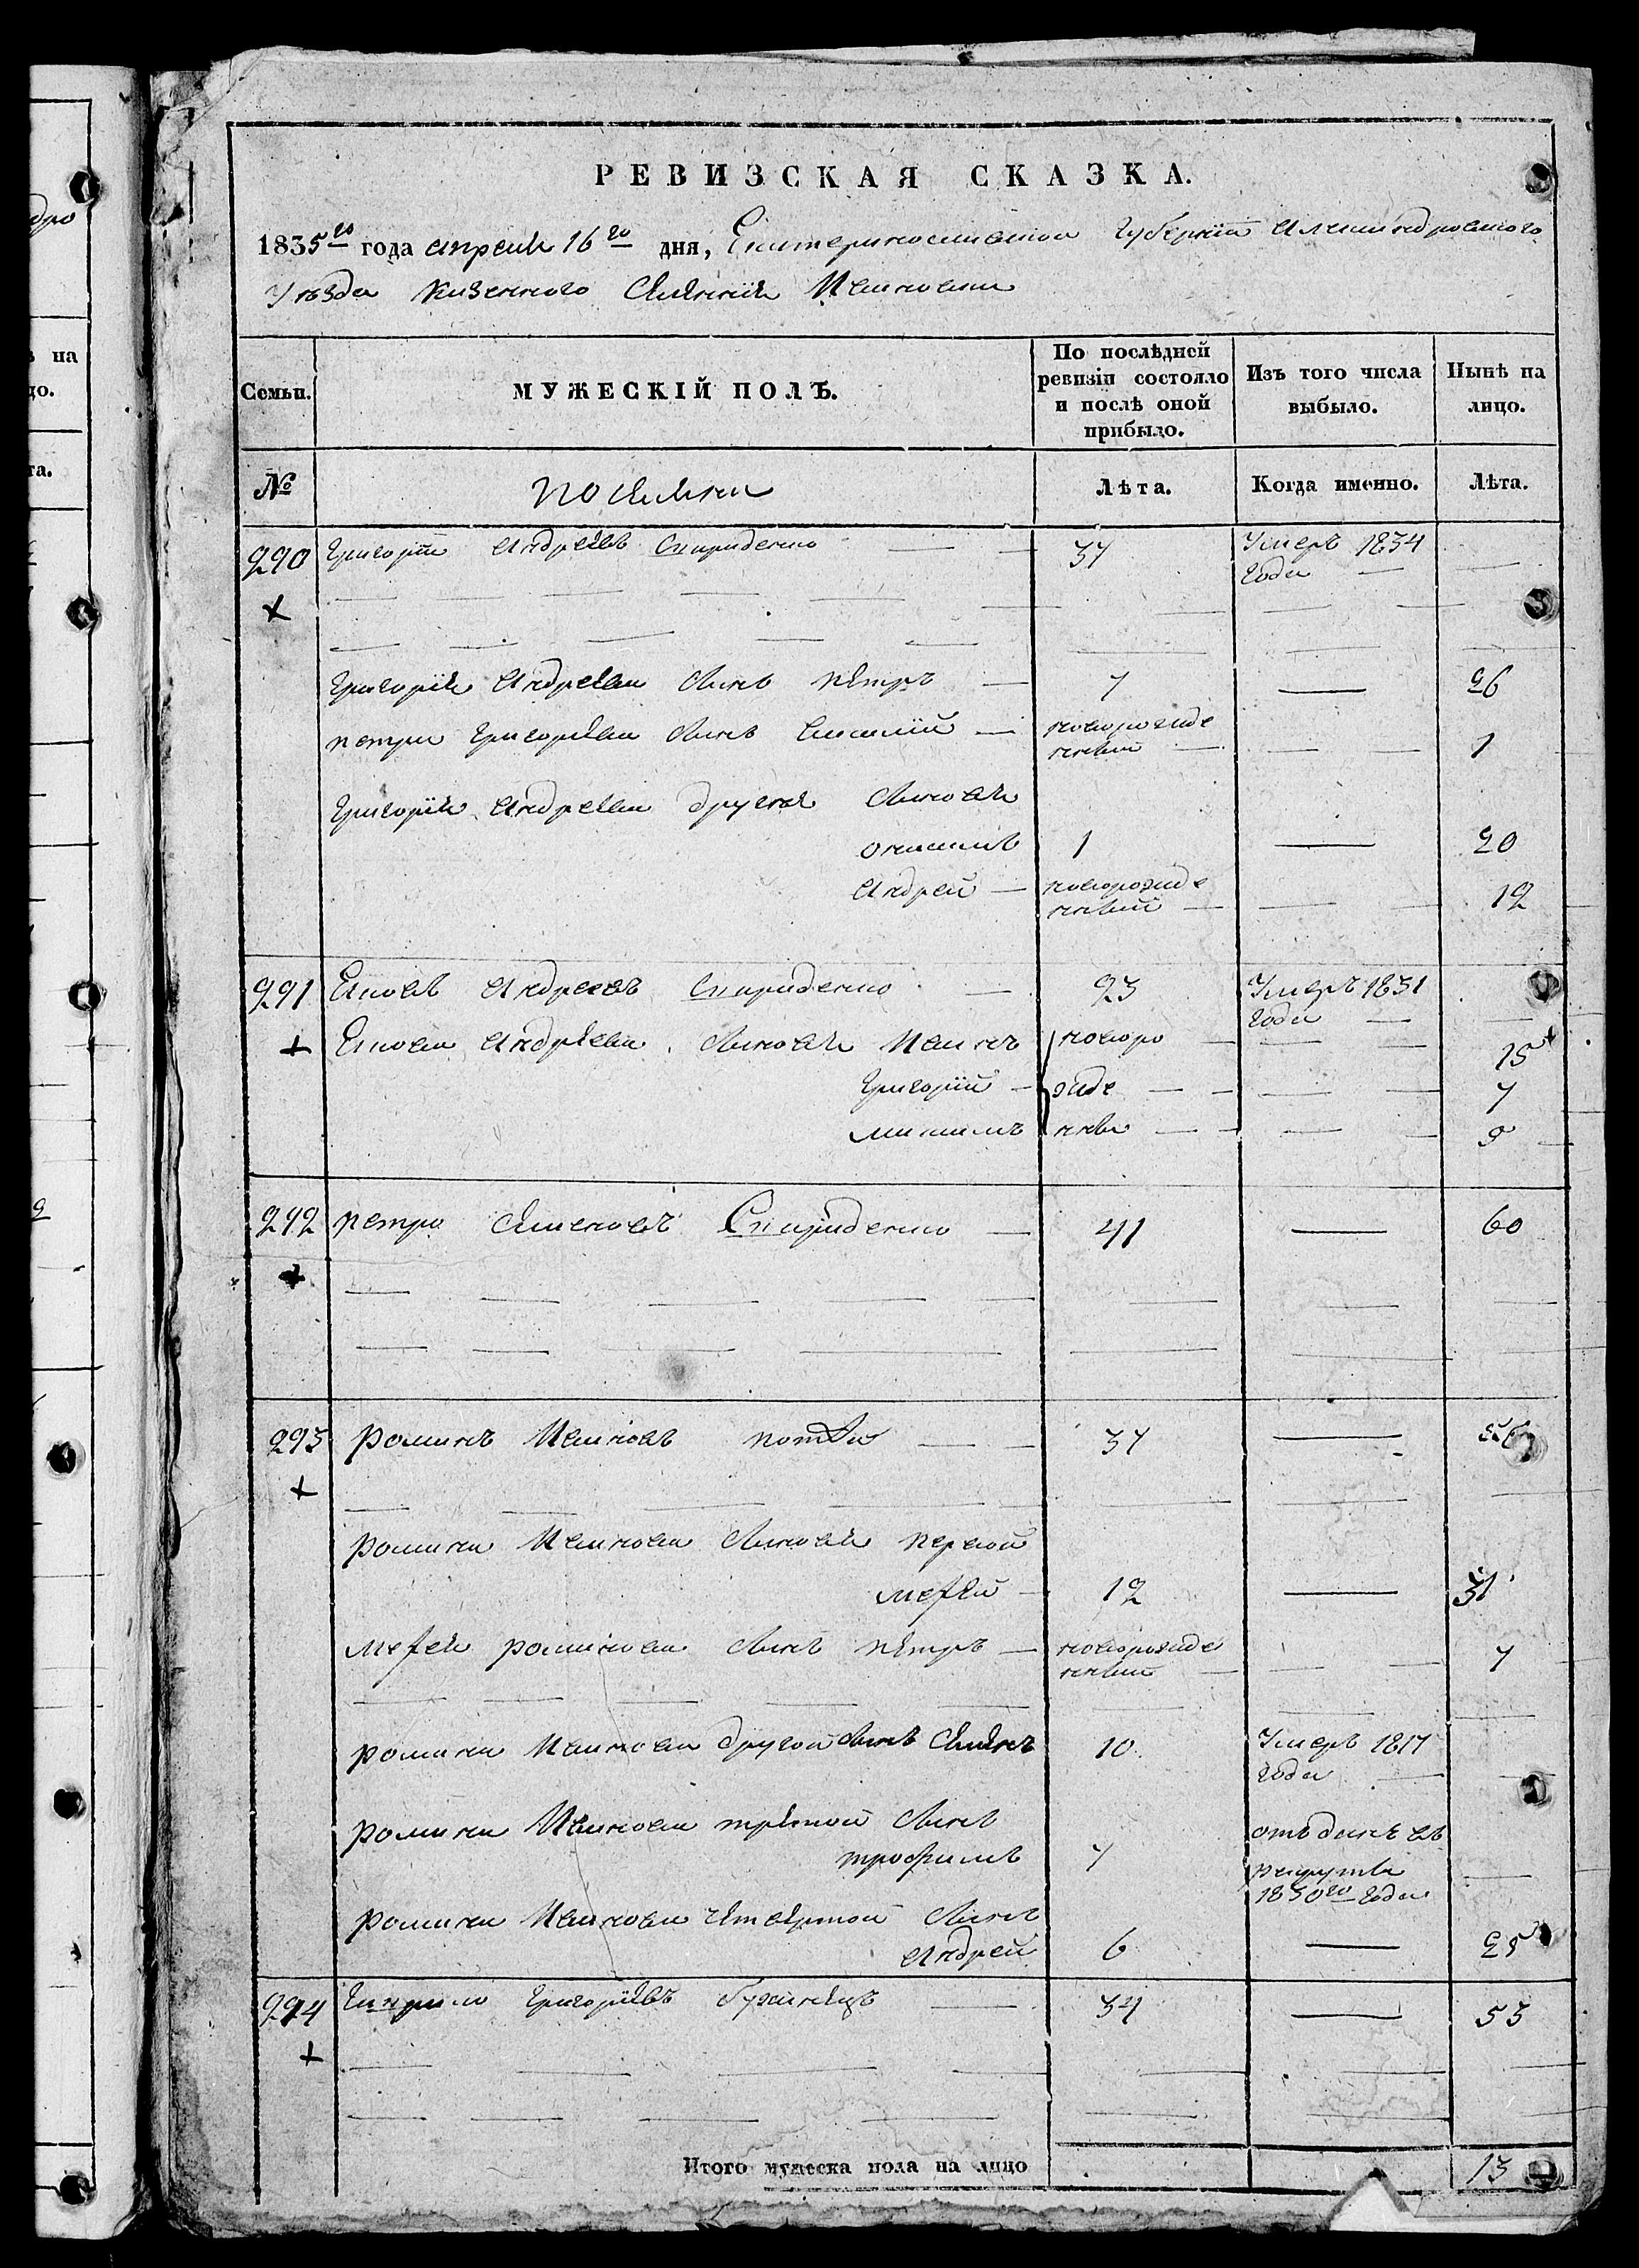 дро
ъ на
цо.
та.
РЕВИЗСКАЯ СКАЗКА.
1835го года апреля 16го дня, Екатеринославской Губернiи Александровского
Уѣзда Казенного Селенiя Ивановки
Семьи.
МУЖЕСКIЙ ПОЛЪ.
По послѣдней ревизiи состояло и послѣ оной прибыло.
Изъ того числа выбыло.
Нынѣ на лицо.
№
Лѣта.
Когда именно.
Лѣта.
290 Григорiй Андреевъ Спириденко 37 Умеръ 1834 года
Григорiя Андреева сынъ Петръ 7 26
Петра Григорьева сынъ Василiй новорожденный 1
Григорiя Андреева другiе сыновья
Онисимъ 1 20
Андрей новорожденный 12
291 Яковъ Андреевъ Спириденко 23 Умеръ 1831 года
Якова Андреева сыновья Иванъ новоро 15
Григорiй жде 7
Максимъ нны 5
292 Петро Семеновъ Спириденко 41 60
293 Романъ Ивановъ 37 56
Романа Ивановa сыновья первой
Мефей 12 31
Мефея Романова сынъ Петръ новорожденный 7
Романа Иванова другой сынъ Семенъ 10 Умеръ 1817 года
Романа Иванова третой сынъ
Трофимъ 7 отъданъ въ рекруты 1830го года
Романа Иванова четвертой сынъ
Андрей 6 25
294 Гаврило Григорьевъ 34 53
Итого мужеска пола на лицо 13